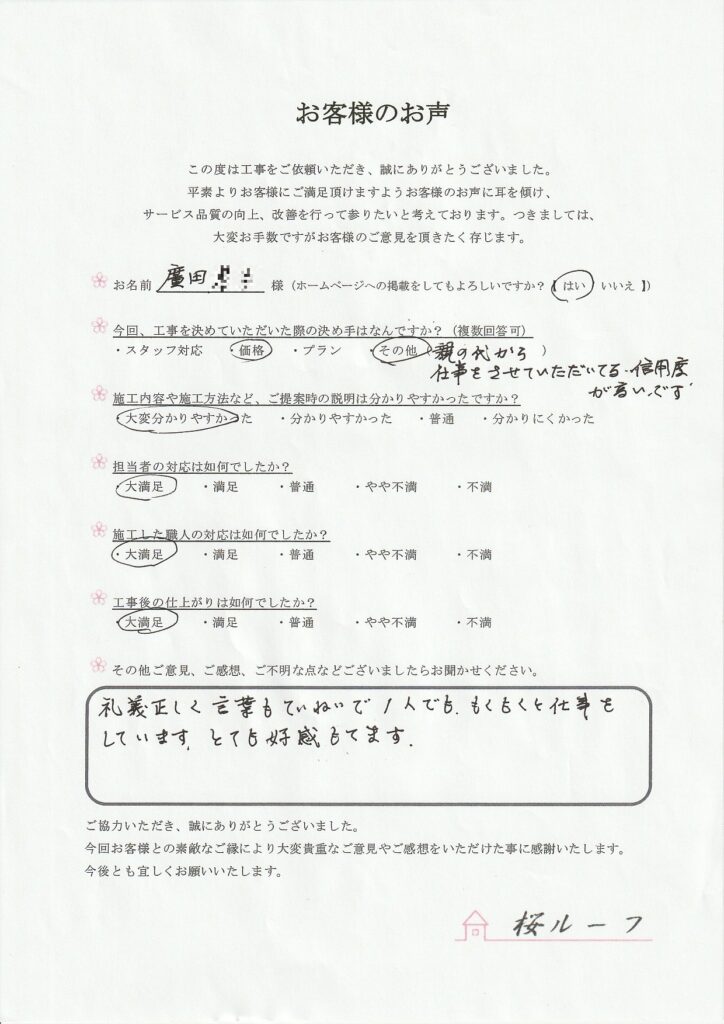 お客様のお声
この度は工事をご依頼いただき、誠にありがとうございました。
平素よりお客様にご満足頂けますようお客様のお声に耳を傾け、
サービス品質の向上、改善を行って参りたいと考えております。つきましては、
大変お手数ですがお客様のご意見を頂きたく存じます。
お名前 廣田 様（ホームページへの掲載をしてもよろしいですか？【 はい いいえ 】）
今回、工事を決めていただいた際の決め手はなんですか？（複数回答可）
・スタッフ対応 ・価格 ・プラン ・その他（親の代から ）
仕事をさせていただいてる。信用度
が高いです
施工内容や施工方法など、ご提案時の説明は分かりやすかったですか？
・大変分かりやすかった ・分かりやすかった ・普通 ・分かりにくかった
担当者の対応は如何でしたか？
・大満足 ・満足 ・普通 ・やや不満 ・不満
施工した職人の対応は如何でしたか？
・大満足 ・満足 ・普通 ・やや不満 ・不満
工事後の仕上がりは如何でしたか？
・大満足 ・満足 ・普通 ・やや不満 ・不満
その他ご意見、ご感想、ご不明な点などございましたらお聞かせください。
礼義正しく言葉もていねいで1人でも、もくもくと仕事を
しています。とても好感もてます。
ご協力いただき、誠にありがとうございました。
今回お客様との素敵なご縁により大変貴重なご意見やご感想をいただけた事に感謝いたします。
今後とも宜しくお願いいたします。
桜ルーフ